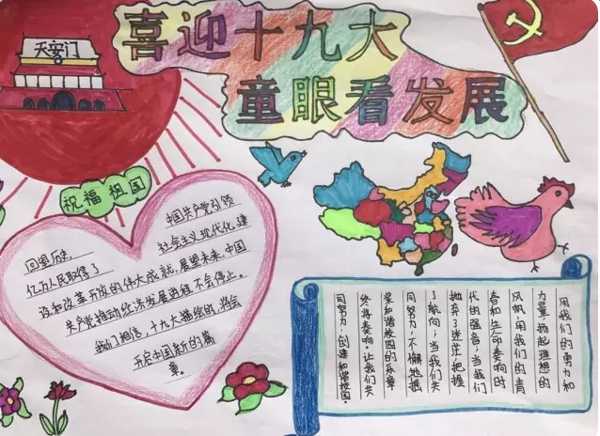 天安门
喜迎十九大
童眼看发展
祝福祖国
中国共产党引领
回望历史,
社会主义现代化建
亿万人民取得了
设和改革开放的伟大成就,展望未来,中国
共产党推动经济发展进程不会停止。
我们相信,十九大描绘的,将会
开启中国新的篇
章。
用我们的勇力和
力量,扬起理想的
风帆,用我们的青
春和生命奏响时
代的强音;当我们
抛弃了迷茫,把握
了航向;当我们共
同努力,不懈地
奏和谐校园的乐章
终将奏响。让我们共
同努力,创建和谐校园。